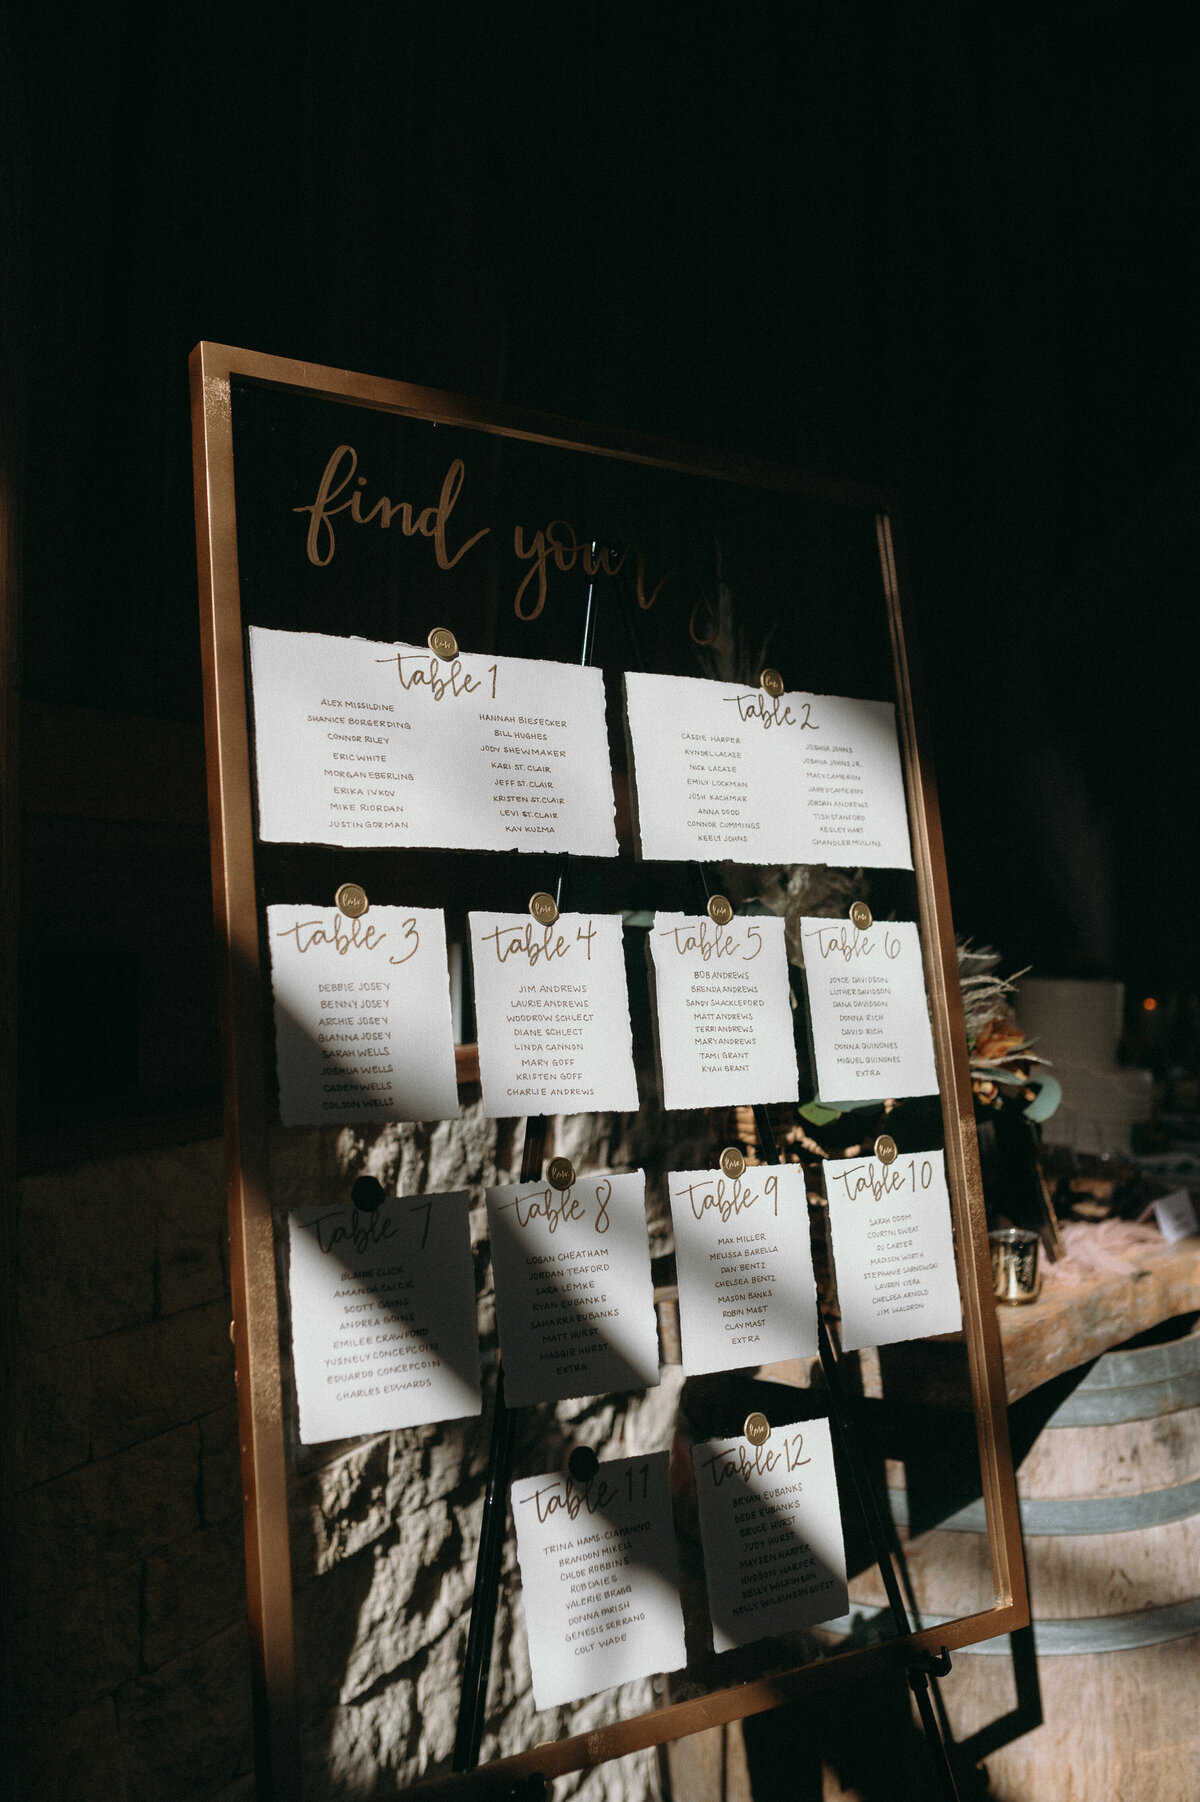 find your
love
table 1
ALEX MISSILDINE
SHANICE BORGERDING
CONNOR RILEY
ERIC WHITE
MORGAN EBERLING
ERIKA IVKOV
MIKE RIORDAN
JUSTIN GORMAN
HANNAH BIESECKER
BILL HUGHES
JODY SHEWMAKER
KARI ST. CLAIR
JEFF ST. CLAIR
KRISTEN ST. CLAIR
LEVI ST. CLAIR
KAY KUZMA
love
table 2
CASSIE HARPER
KYNDEL LACAZE
NICK LACAZE
EMILY LOCKMAN
JOSH KACHMAR
ANNA DODD
CONNOR CUMMINGS
KEELY JOHNS
JOSHUA JOHNS
JOSHUA JOHNS JR.
MACY CAMERON
JARED CAMERON
JORDAN ANDREWS
TISH STANFORD
KESLEY HART
CHANDLER MULLINS
love
table 3
DEBBIE JOSEY
BENNY JOSEY
ARCHIE JOSEY
GIANNA JOSEY
SARAH WELLS
JOSHUA WELLS
CADEN WELLS
COLSON WELLS
love
table 4
JIM ANDREWS
LAURIE ANDREWS
WOODROW SCHLECT
DIANE SCHLECT
LINDA CANNON
MARY GOFF
KRISTEN GOFF
CHARLIE ANDREWS
love
table 5
BOB ANDREWS
BRENDA ANDREWS
SANDY SHACKLEFORD
MATT ANDREWS
TERRI ANDREWS
MARY ANDREWS
TAMI GRANT
KYAH GRANT
love
table 6
JOYCE DAVIDSON
LUTHER DAVIDSON
DANA DAVIDSON
DONNA RICH
DAVID RICH
DONNA QUINONES
MIGUEL QUINONES
EXTRA
table 7
BLAINE CLICK
AMANDA CLICK
SCOTT GOINS
ANDREA GOINS
EMILEE CRAWFORD
YUSNELY CONCEPCOIN
EDUARDO CONCEPCOIN
CHARLES EDWARDS
love
table 8
LOGAN CHEATHAM
JORDAN TEAFORD
SARA LEMKE
RYAN EUBANKS
SAHARRA EUBANKS
MATT HURST
MAGGIE HURST
EXTRA
love
table 9
MAX MILLER
MELISSA BARELLA
DAN BENTZ
CHELSEA BENTZ
MASON BANKS
ROBIN MAST
CLAY MAST
EXTRA
love
table 10
SARAH ODOM
COURTNI SWEAT
DJ CARTER
MADISON WORTH
STEPHANIE SARNOWSKI
LAUREN VIERA
CHELSEA ARNOLD
JIM WALDRON
table 11
TRINA HAMS-CIAPANNO
BRANDON MIKELL
CHLOE ROBBINS
ROB DAIES
VALERIE BRAGG
DONNA PARISH
GENESIS SERRANO
COLT WADE
love
table 12
BRYAN EUBANKS
DEDE EUBANKS
BRUCE HURST
JUDY HURST
MAYSEN HARPER
HUDSON HARPER
KELLY WILKINSON
KELLY WILKINSON GUEST